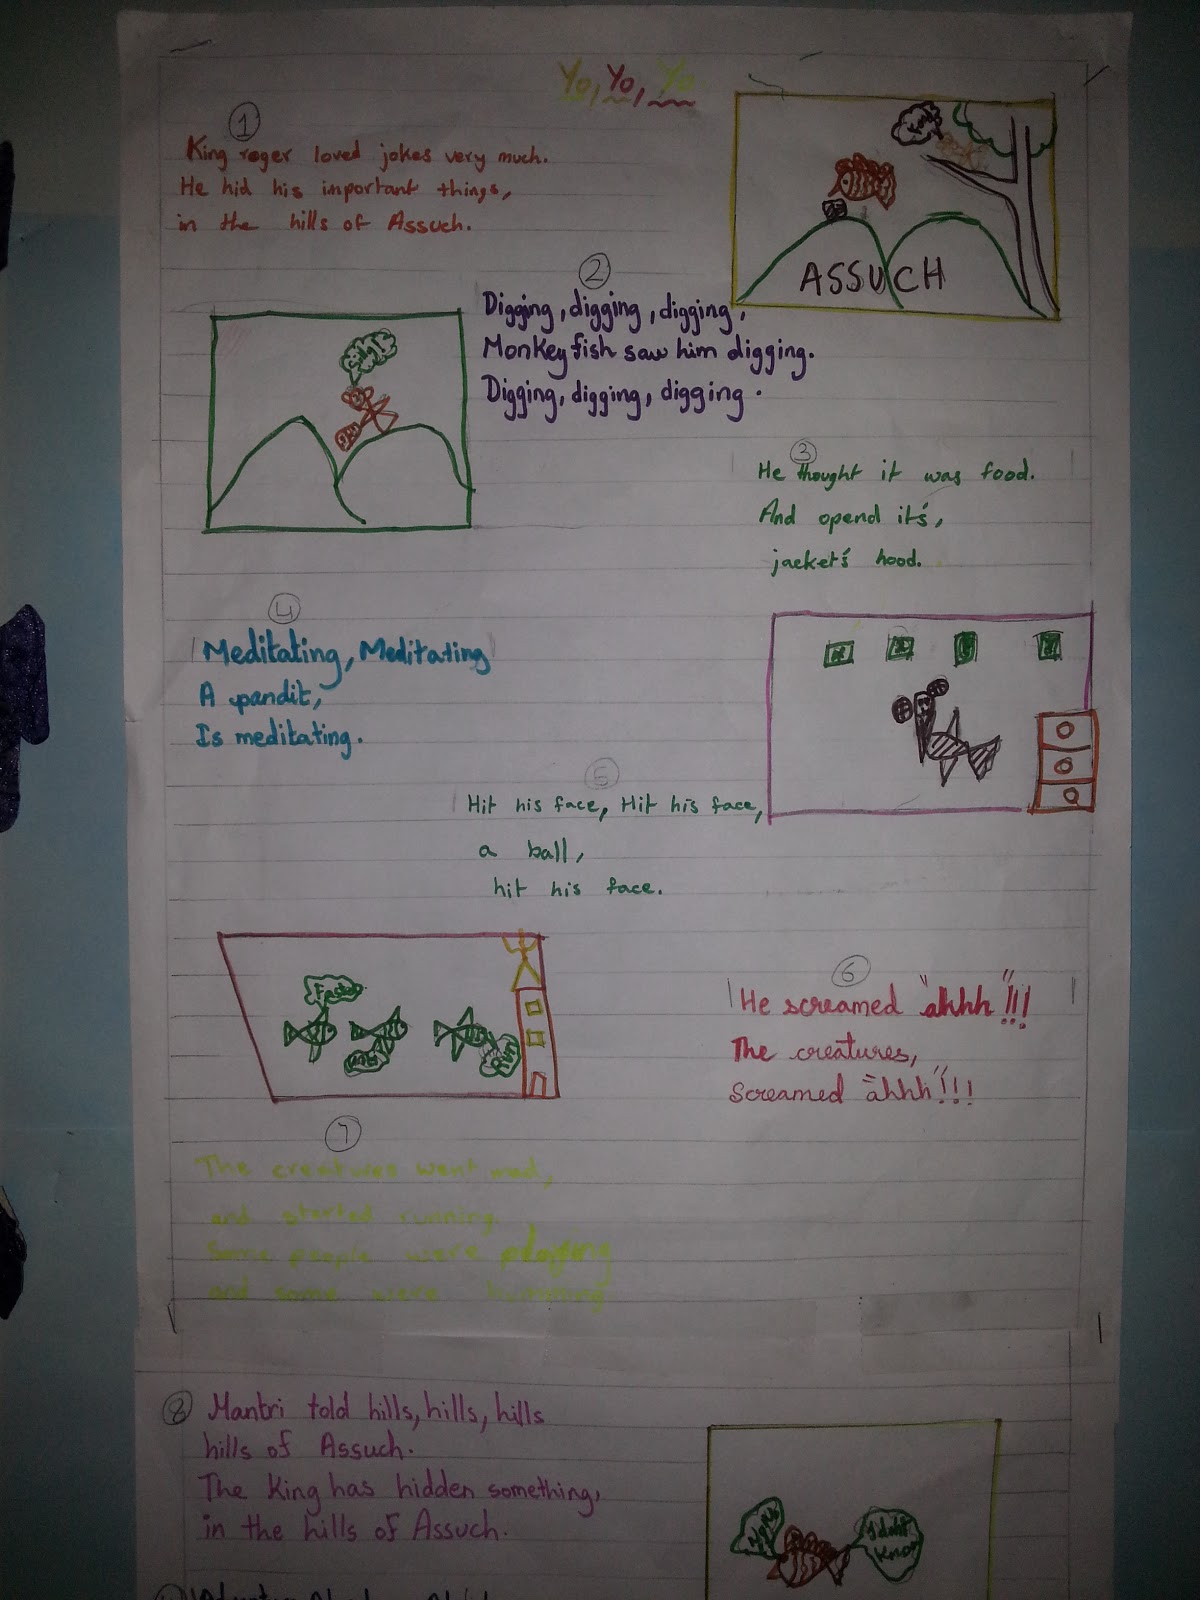 Yo, Yo, Yo
1
King roger loved jokes very much.
He hid his important things,
in the hills of Assuch.
ASSUCH
2
Digging, digging, digging,
Monkey fish saw him digging.
Digging, digging, digging.
3
He thought it was food.
And opend it's,
jacket's hood.
4
Meditating, Meditating
A pandit,
Is meditating.
5
Hit his face, Hit his face,
a ball,
hit his face.
6
He screamed "ahhh"!!!
The creatures,
Screamed "ahhh"!!!
7
The creatures went mad,
and started running.
Some people were
and some were humming
8 Mantri told hills, hills, hills
hills of Assuch.
The King has hidden something,
in the hills of Assuch.
I don't
know